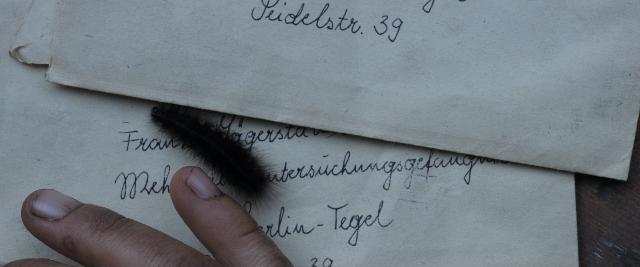 Seidelstr. 39
Fran Jägerstä
Weh untersuchungsgefängni
erlin-Tegel
39